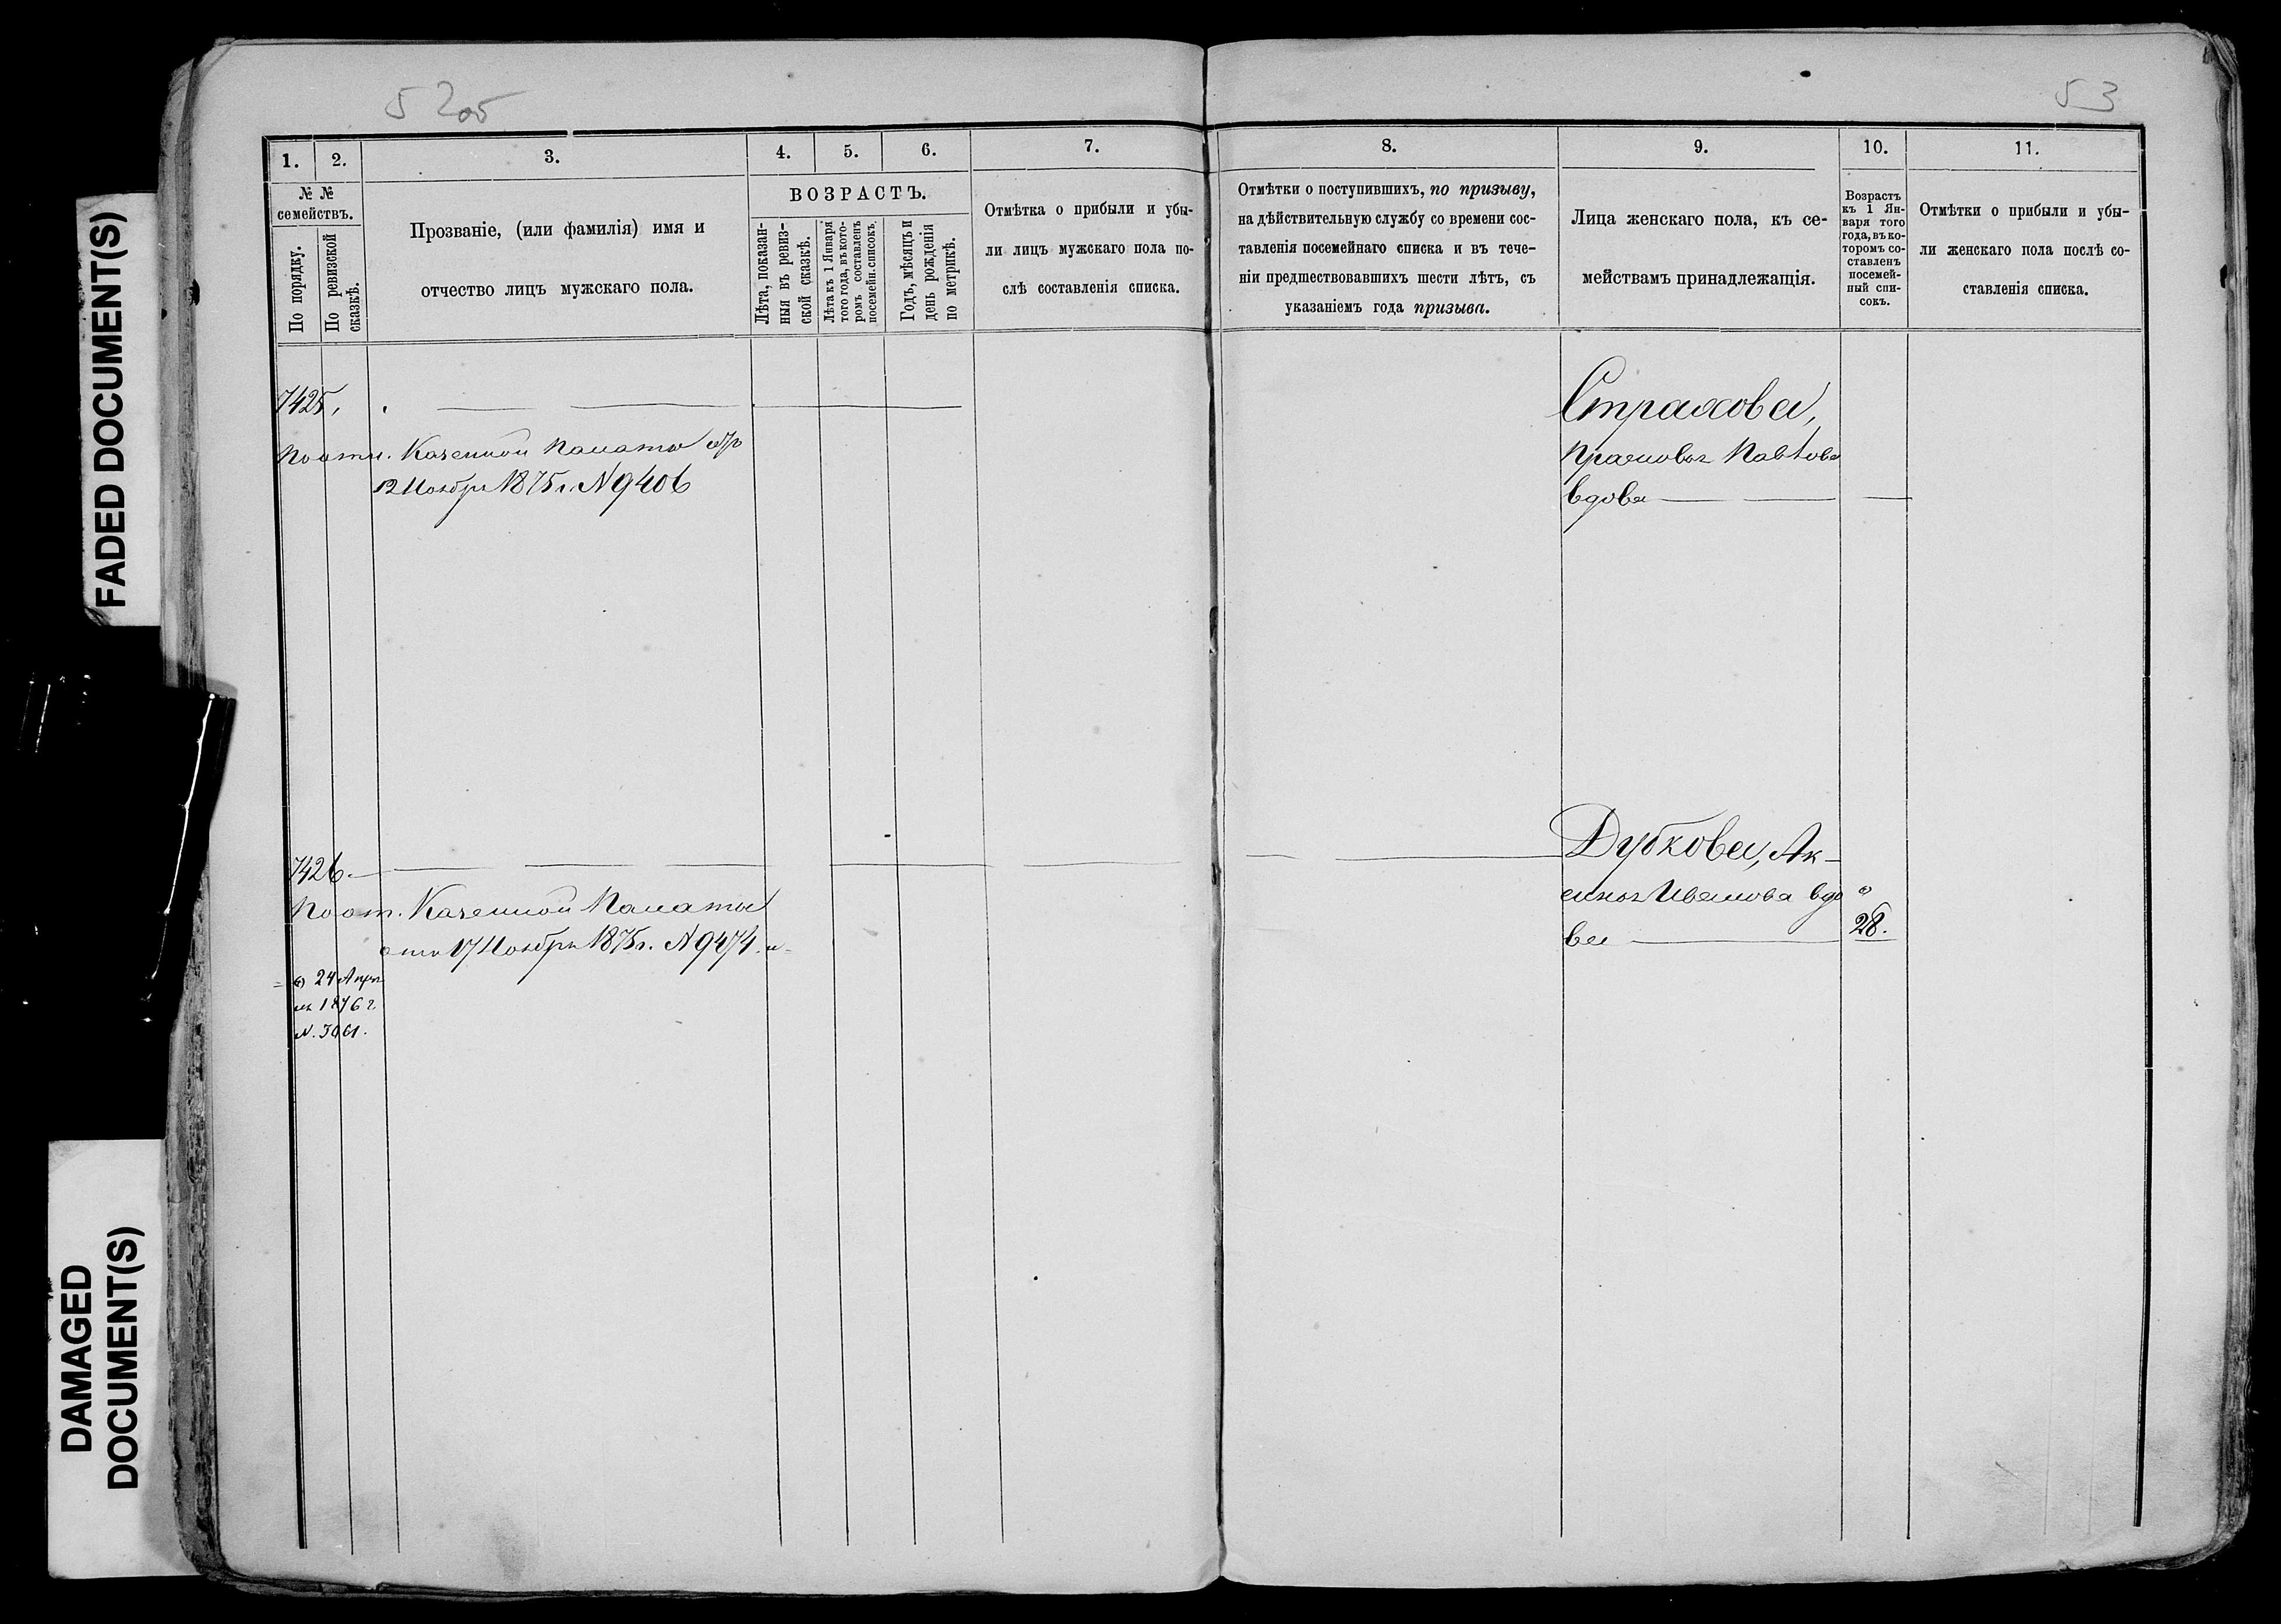 52об
53
FADED DOCUMENT(S)
DAMAGED
DOCUMENT(S)
1.
2.
3.
4.
5.
6.
7.
8.
9.
10.
11.
№ №
семействъ.
По порядку.
По ревизской
сказкѣ.
Прозваніе, (или фамилія) имя и
отчество лицъ мужскаго пола.
ВОЗРАСТЪ.
Лѣта, показан-
ныя въ ревиз-
ской сказкѣ.
Лѣта къ 1 Января
того года, въ кото-
ромъ составленъ
посемейн. списокъ.
Годъ, мѣсяцъ и
день рожденія
по метрикѣ.
Отмѣтка о прибыли и убы-
ли лицъ мужскаго пола по-
слѣ составленія списка.
Отмѣтки о поступившихъ, по призыву,
на дѣйствительную службу со времени сос-
тавленія посемейнаго списка и въ тече-
ніи предшествовавшихъ шести лѣтъ, съ
указаніемъ года призыва.
Лица женскаго пола, къ се-
мействамъ принадлежащія.
Возрастъ
къ 1 Ян-
варя того
года, въ ко-
торомъ со-
ставленъ
посемей-
ный спи-
сокъ.
Отмѣтки о прибыли и убы-
ли женскаго пола послѣ со-
ставленія списка.
7425,
По отн. Казенной Палаты отъ
12 Ноября 1875 г. N 9406
Страхова,
Прасковья Павлова
вдова
7426.
По от. Казенной Палаты
отъ 17 Ноября 1875 г. N 9474. и
24 Апрѣ
ля 1876 г.
N. 3061.
Дубкова, Ак-
синья Иванова вдо
ва
28.